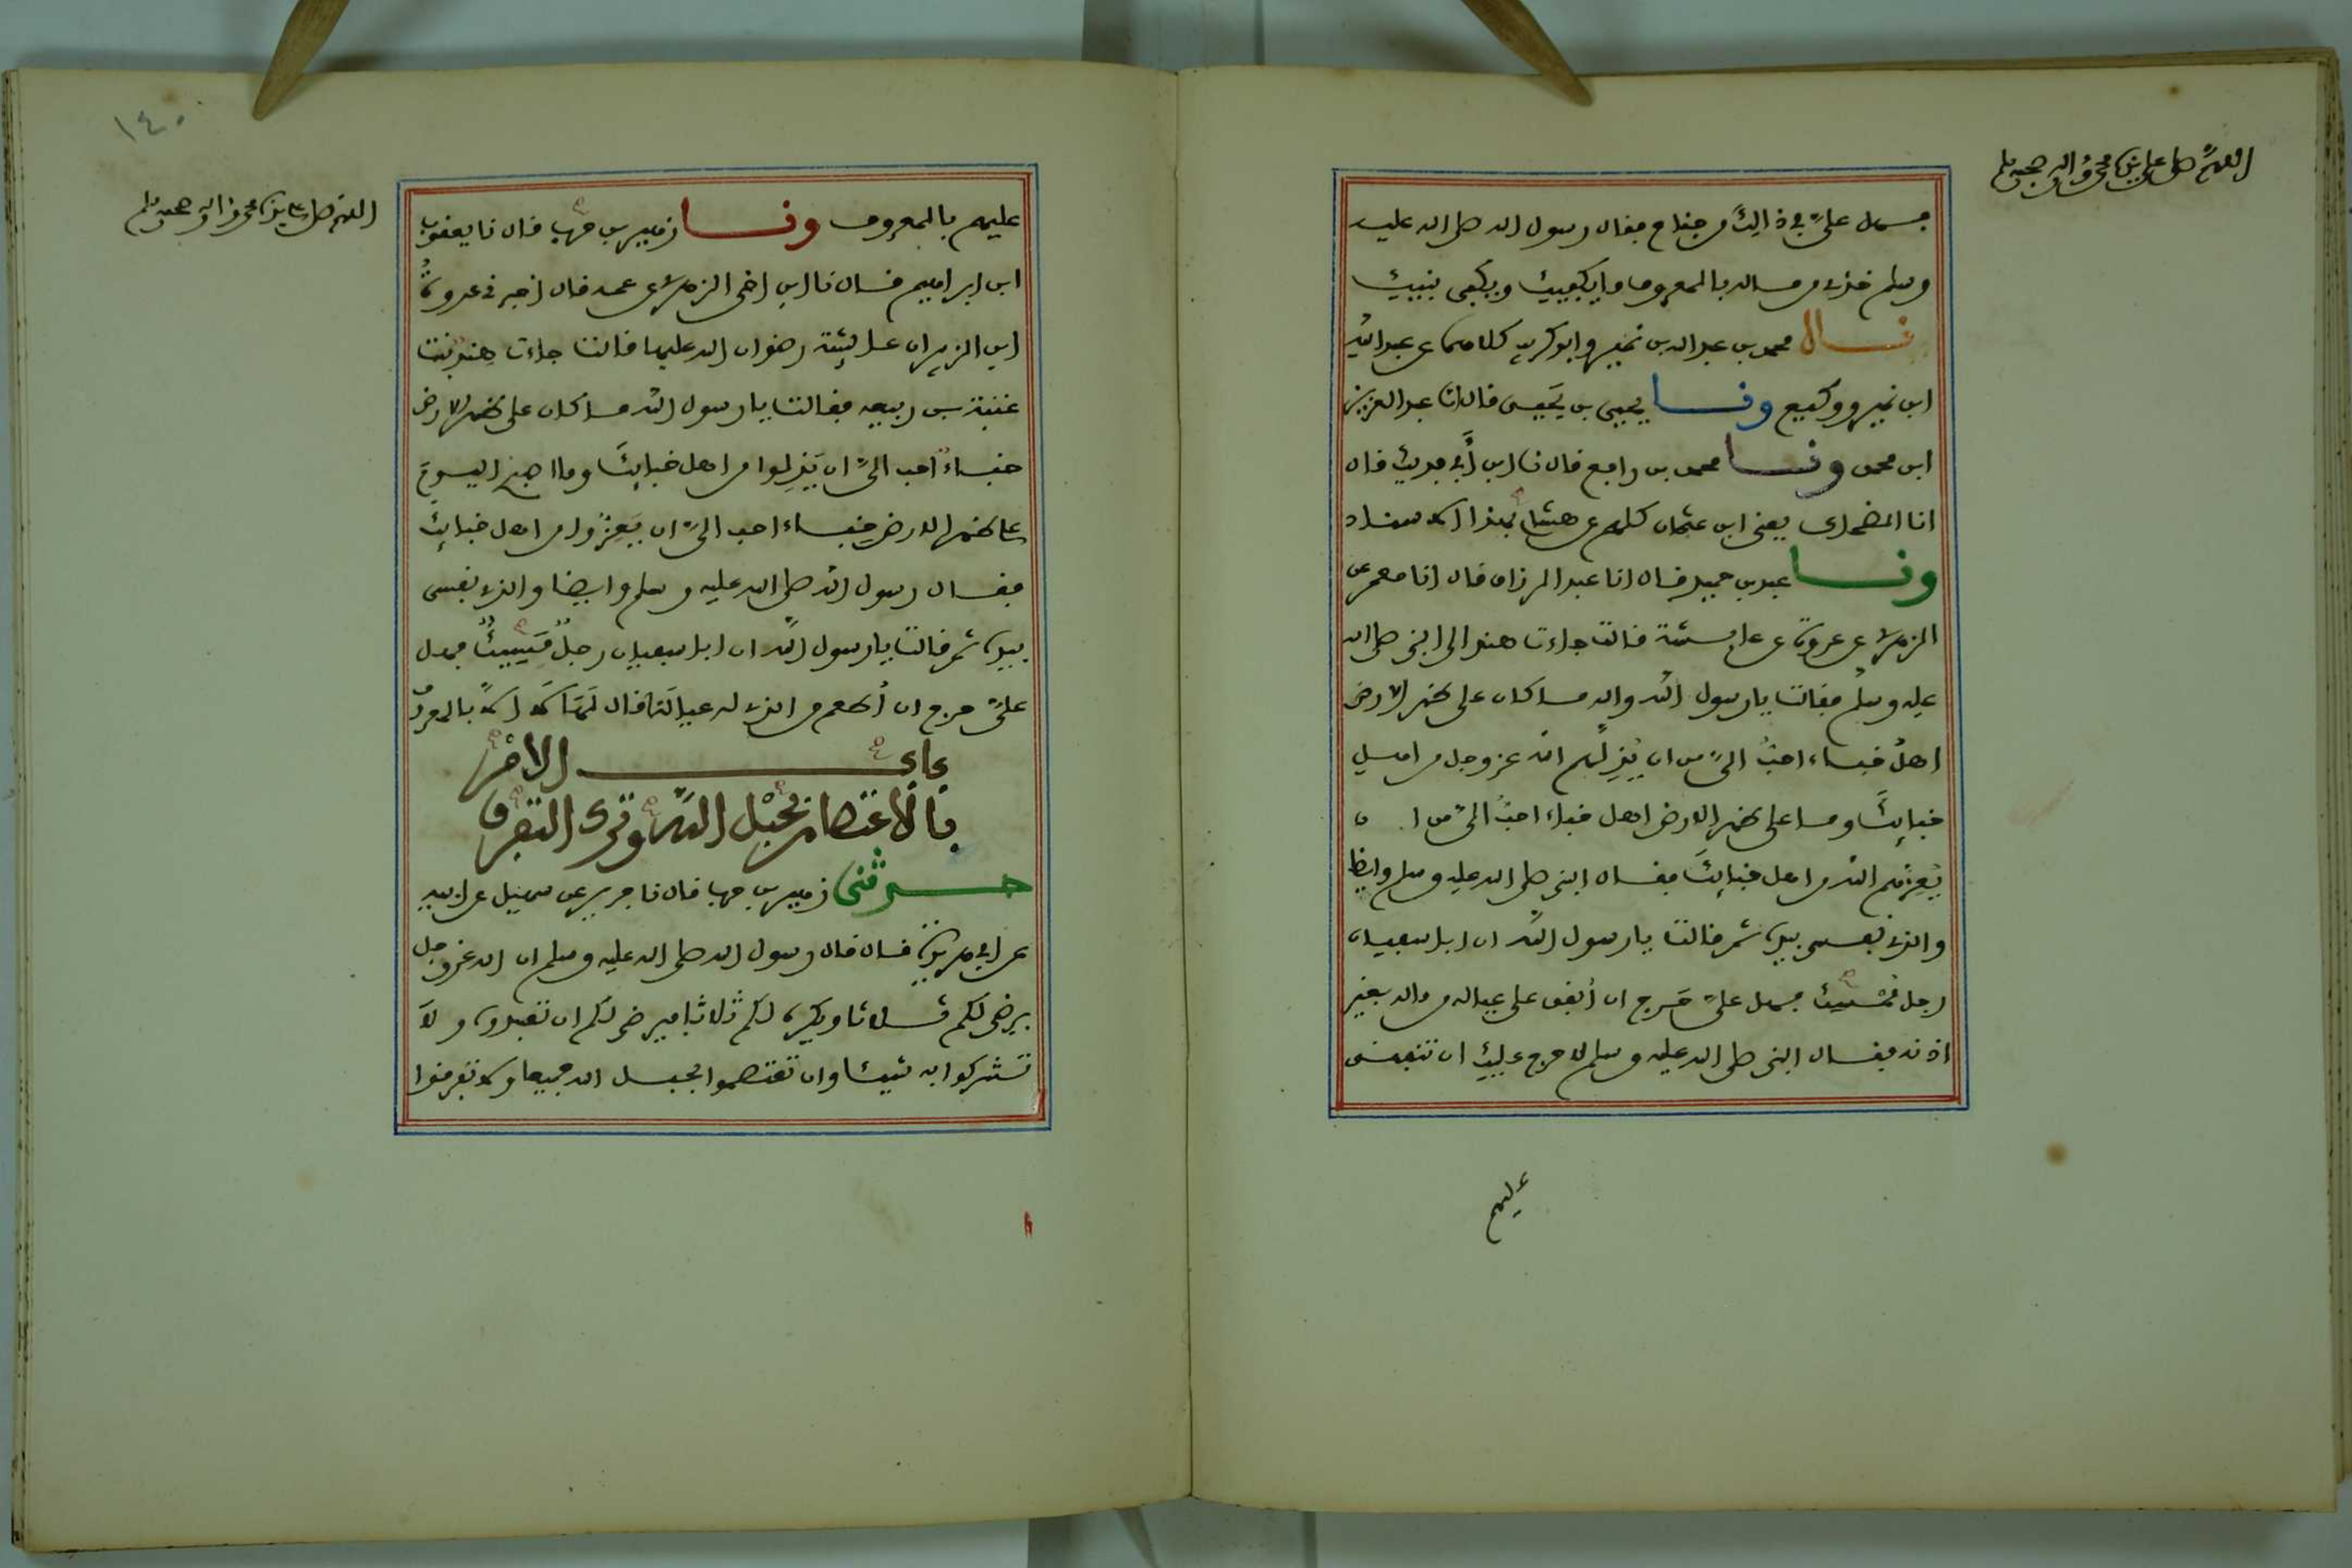 اللهم صل على سيدنا محمد واله وصحبه وسلم
فهل علىّ في ذالك من جناح فقال رسول الله صلى الله عليه
وسلم خذي من ماله بالمعروف ما يكفيك ويكفي بنيك
نا محمد بن عبد الله بن نمير وابو كريب كلاهما عن عبد الله
ابن نمير ووكيع ونا يحيى بن يحيى قال انا عبد العزيز
ابن محمد ونا محمد بن رافع قال نا ابن أبي فديك قال
انا الضحاك يعني ابن عثمان كلهم عن هشام بهذا الاسناد
ونا عبد بن حميد قال انا عبد الرزاق قال انا معمر عن
الزهري عن عروة عن عايشة قالت جاءت هند الى النبي صلى الله
عليه وسلم فقالت يا رسول الله والله ما كان على ظهر الارض
اهل خباء احبُّ الىّ من ان يُذِلَّهم الله عز وجل من اهل
خبايك وما على ظهر الارض اهل خباء احبُّ الىّ من ان
يُعِزهم الله من اهل خبايك فقال النبي صلى الله عليه وسلم وايضا
والذي نفسي بيده ثم قالت يا رسول الله ان ابا سفيان
رجل مُمْسِك فهل علىّ حَرج ان أنفق على عياله من ماله بغير
اذنه فقال النبي صلى الله عليه وسلم لا حرج عليكِ ان تنفقي
عليهم
١٤٠
اللهم صل على سيدنا محمد واله وصحبه وسلم
عليهم بالمعروف ونا زهير بن حرب قال نا يعقوب
ابن ابراهيم قال نا ابن اخي الزهري عن عمه قال اخبرني عروة
ابن الزبير ان عايشة رضوان الله عليها قالت جاءت هند بنت
عتبة بن ربيعه فقالت يا رسول الله ما كان على ظهر الارض
خباءٌ احب الىّ ان يَذِلوا من اهل خبايكَ وما اصبح اليومَ
على ظهر الارض خباء احب الىّ ان يَعِزُّوا من اهل خبايك
فقال رسول الله صلى الله عليه وسلم وايضا والذي نفسي
بيده ثم قالت يا رسول الله ان ابا سفيان رجلٌ مَسِيكٌ فهل
علىّ حرج ان أُطعم من الذي له عيالَنا قال لَهَا لا الا بالمعروف
باب الامر
بالاعتصام بحبل الله وترك التفرق
حدثني زهير بن حرب قال نا جرير عن سهيل عن ابيه
عن ابي هريرة قال قال رسول الله صلى الله عليه وسلم ان الله عز وجل
يرضى لكم ثلاثا ويكره لكم ثلاثا فيرضى لكم ان تعبدوه ولا
تشركوا به شيئا وان تعتصموا بحبل الله جميعا ولا تفرقوا